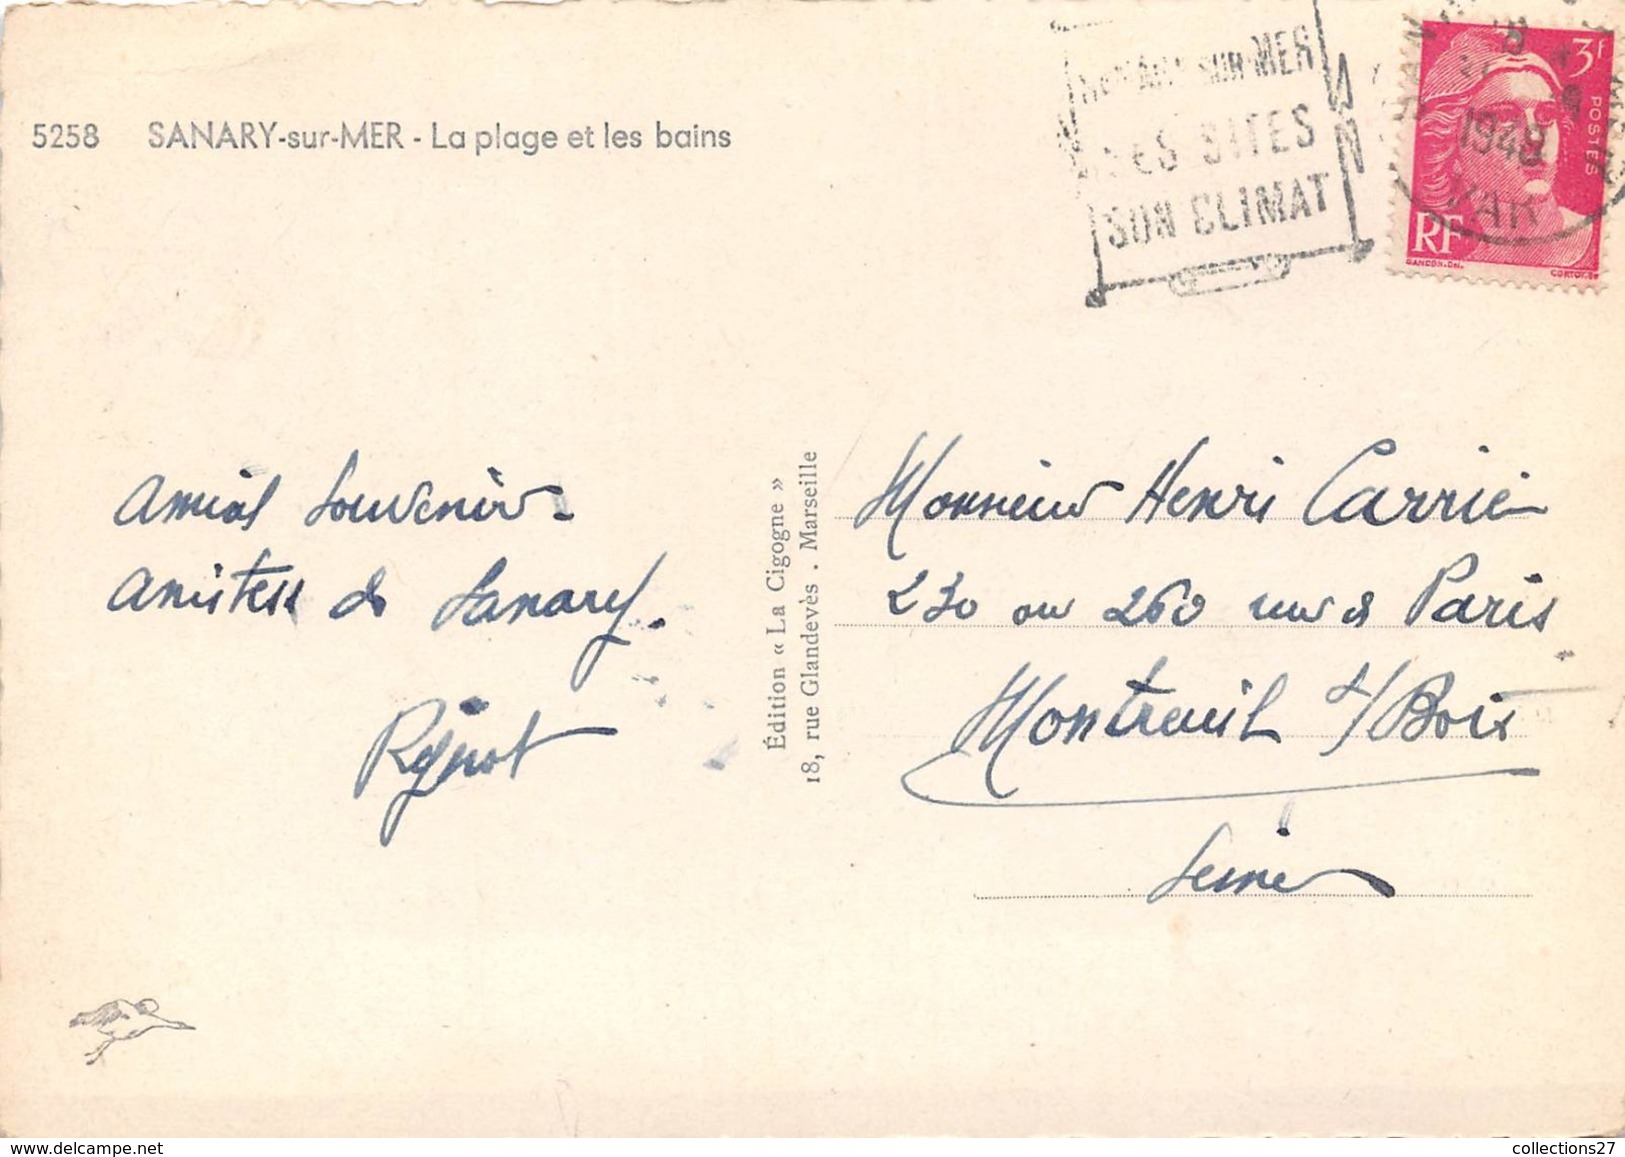 5258 SANARY-sur-MER - La plage et les bains
SUR-MER
SES SITES
SON CLIMAT
1948
VAR
3F
POSTES
RF
GANDON-DEL.
Amical Souvenir -
Amitiés de Sanary.
Édition « La Cigogne »
18, rue Glandevès . Marseille
Monsieur Henri Carrier
230 ou 260 rue de Paris
Montreuil s/Bois
Seine
collections27